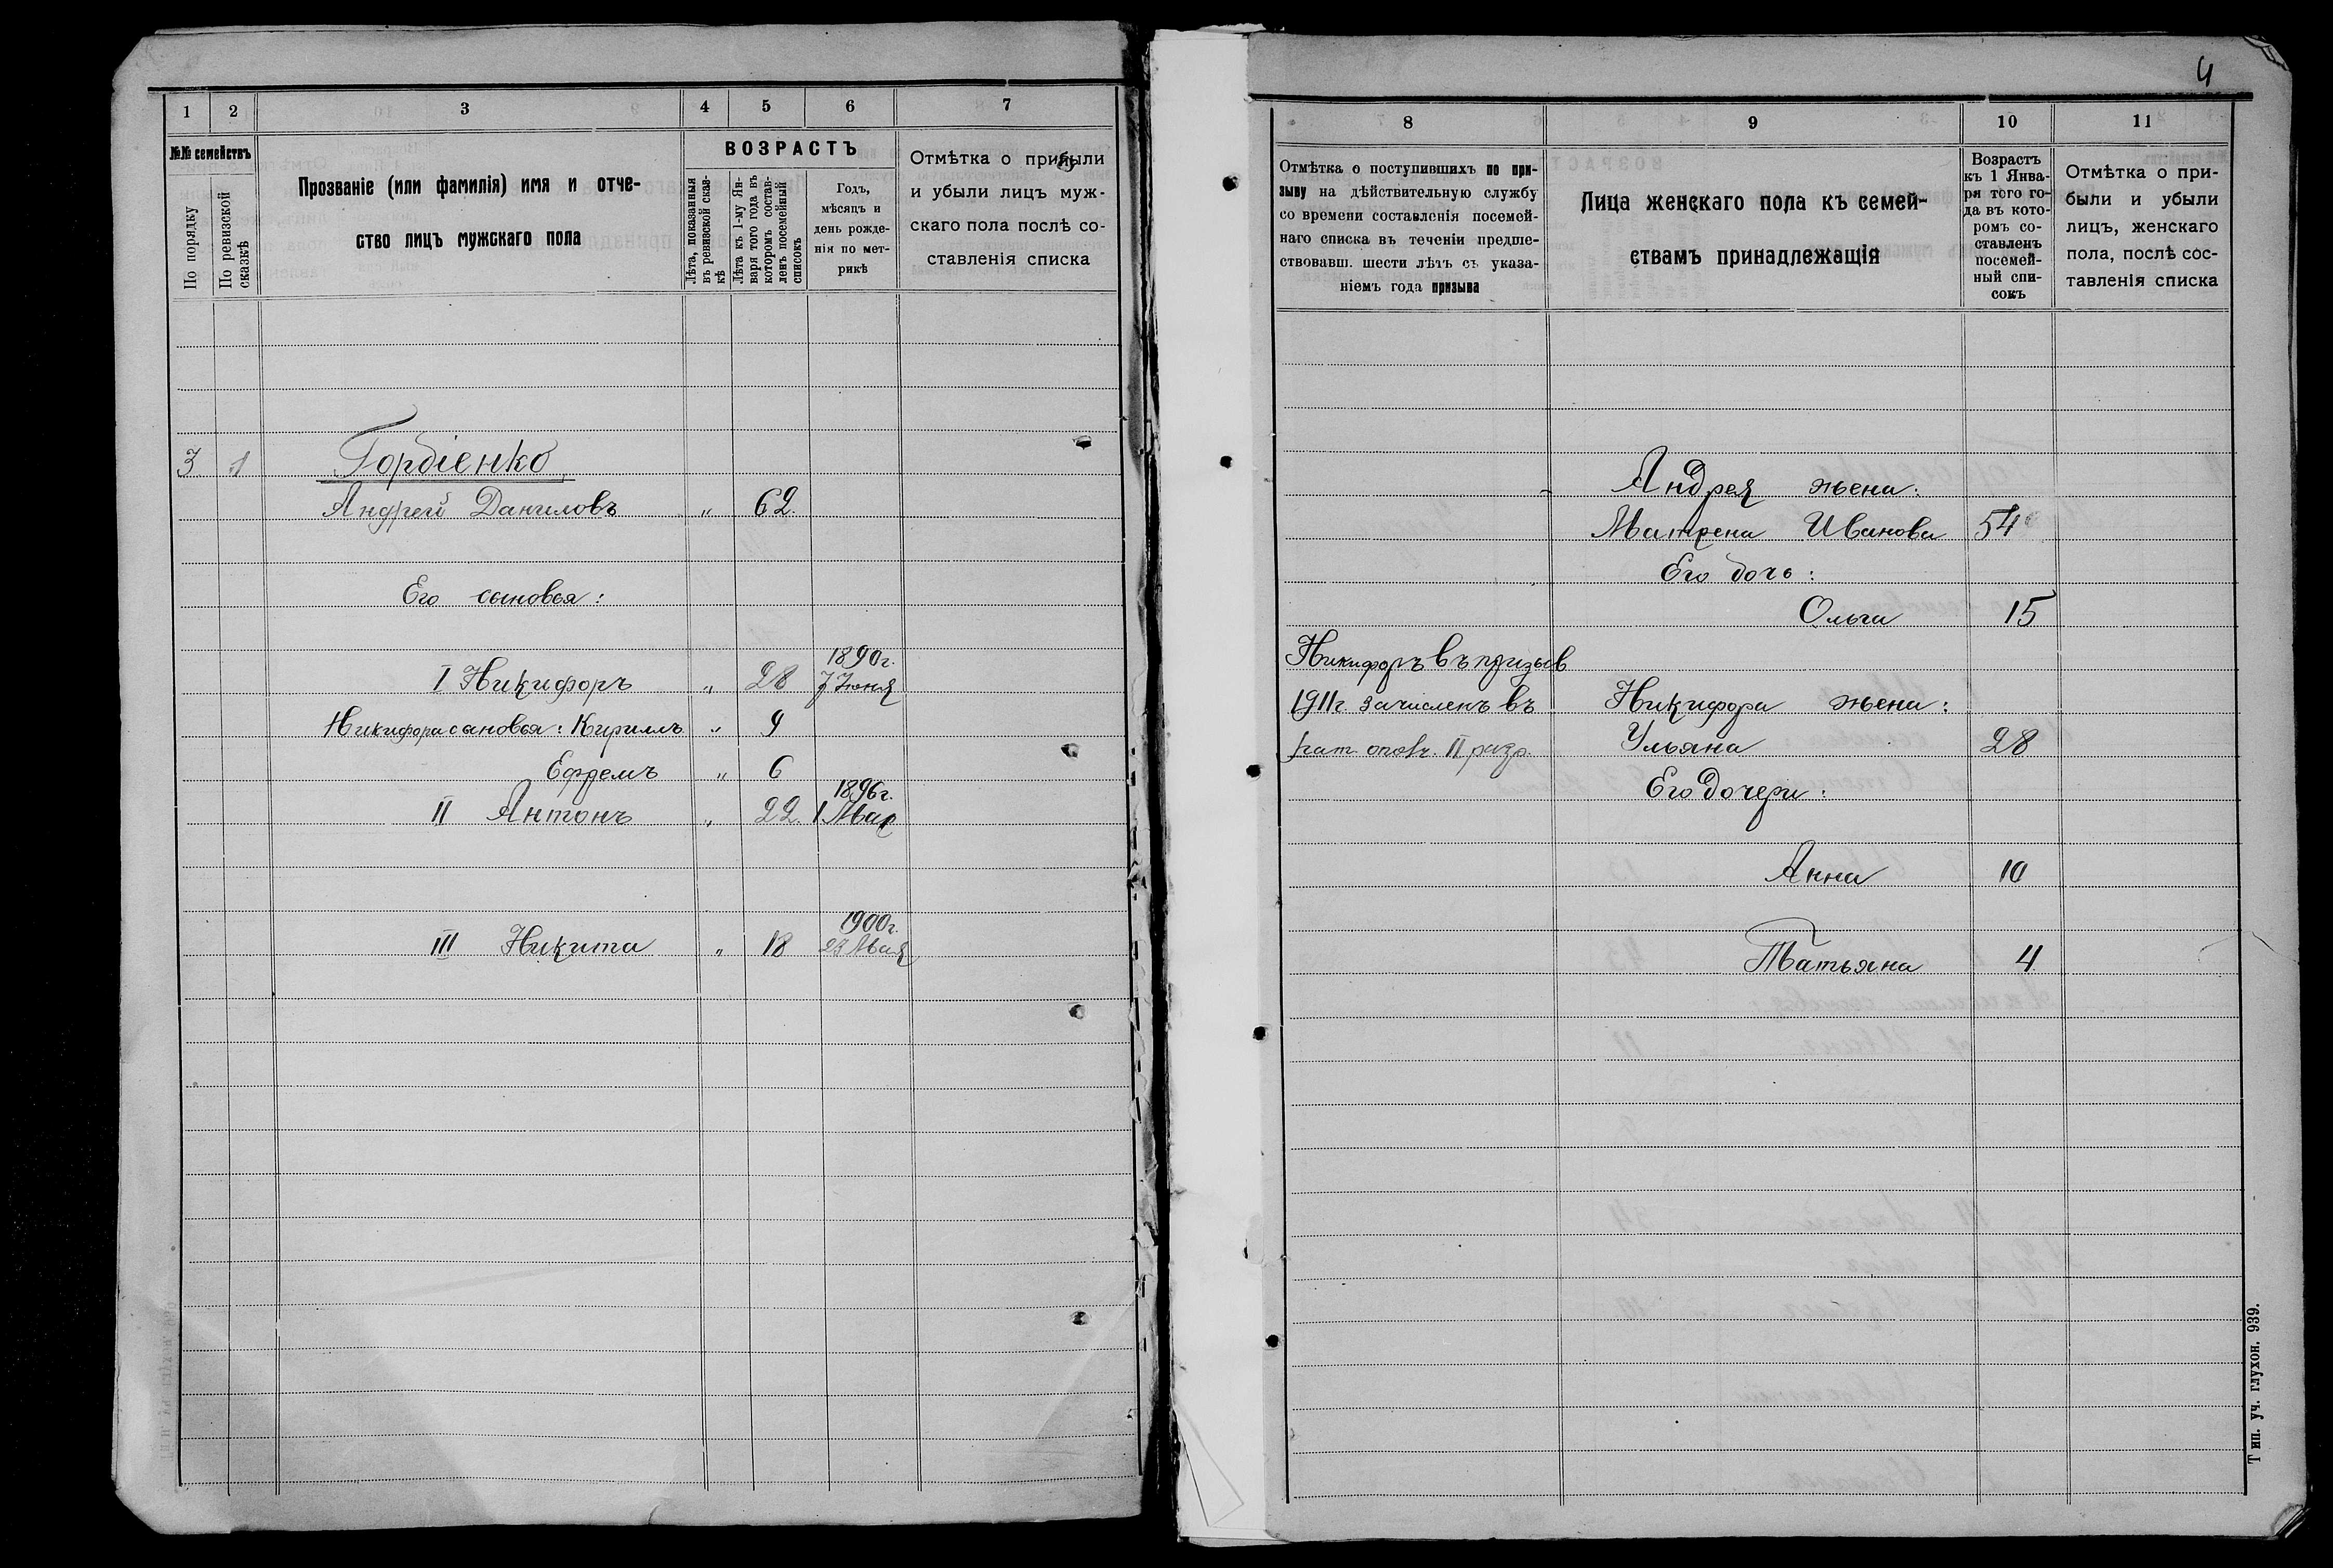 1 2 3 4 5 6 7
№№ семействъ
По порядку
По ревизской сказкѣ
Прозваніе (или фамилія) имя и отче-
ство лицъ мужскаго пола
ВОЗРАСТЪ
Лѣта, показанныя
въ ревизской сказ-
кѣ
Лѣта къ 1-му Ян-
варя того года въ
которомъ состав-
ленъ посемейный
списокъ
Годъ,
мѣсяцъ и
день рожде-
нія по мет-
рикѣ
Отмѣтка о прибыли
и убыли лицъ муж-
скаго пола послѣ со-
ставленія списка
3 1 Гордіенко
Андрей Даниловъ „ 62.
Его сыновья:
1890г.
I Никифоръ „ 28 7 Іюня
Никифора сыновья: Кириллъ „ 9
Ефремъ „ 6
1896г.
II Антонъ „ 22. 1 Мар
1900г.
III Никита „ 18 23 Мая
4
8 9 10 11
Отмѣтка о поступившихъ по при-
зыву на дѣйствительную службу
со времени составленія посемей-
наго списка въ теченіи предше-
ствовавш. шести лѣтъ съ указа-
ніемъ года призыва
Лица женскаго пола къ семей-
ствамъ принадлежащія
Возрастъ
къ 1 Янва-
ря того го-
да въ кото-
ромъ со-
ставленъ
посемей-
ный спи-
сокъ
Отмѣтка о при-
были и убыли
лицъ, женскаго
пола, послѣ сос-
тавленія списка
Андрея жена:
Матрена Иванова 54
Его дочь:
Ольга 15
Никифоръ въ призыв
1911г. зачисленъ въ Никифора жена:
рат. опол. II разр. Ульяна 28
Его дочери:
Анна 10
Татьяна 4.
Тип. уч. глухон. 939.